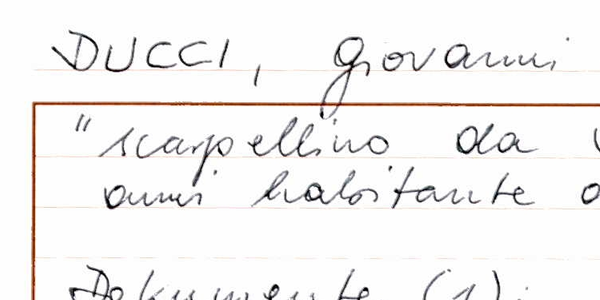 DUCCI, Giovanni
"scarpellino da
anni habitante
Dokumente (1):